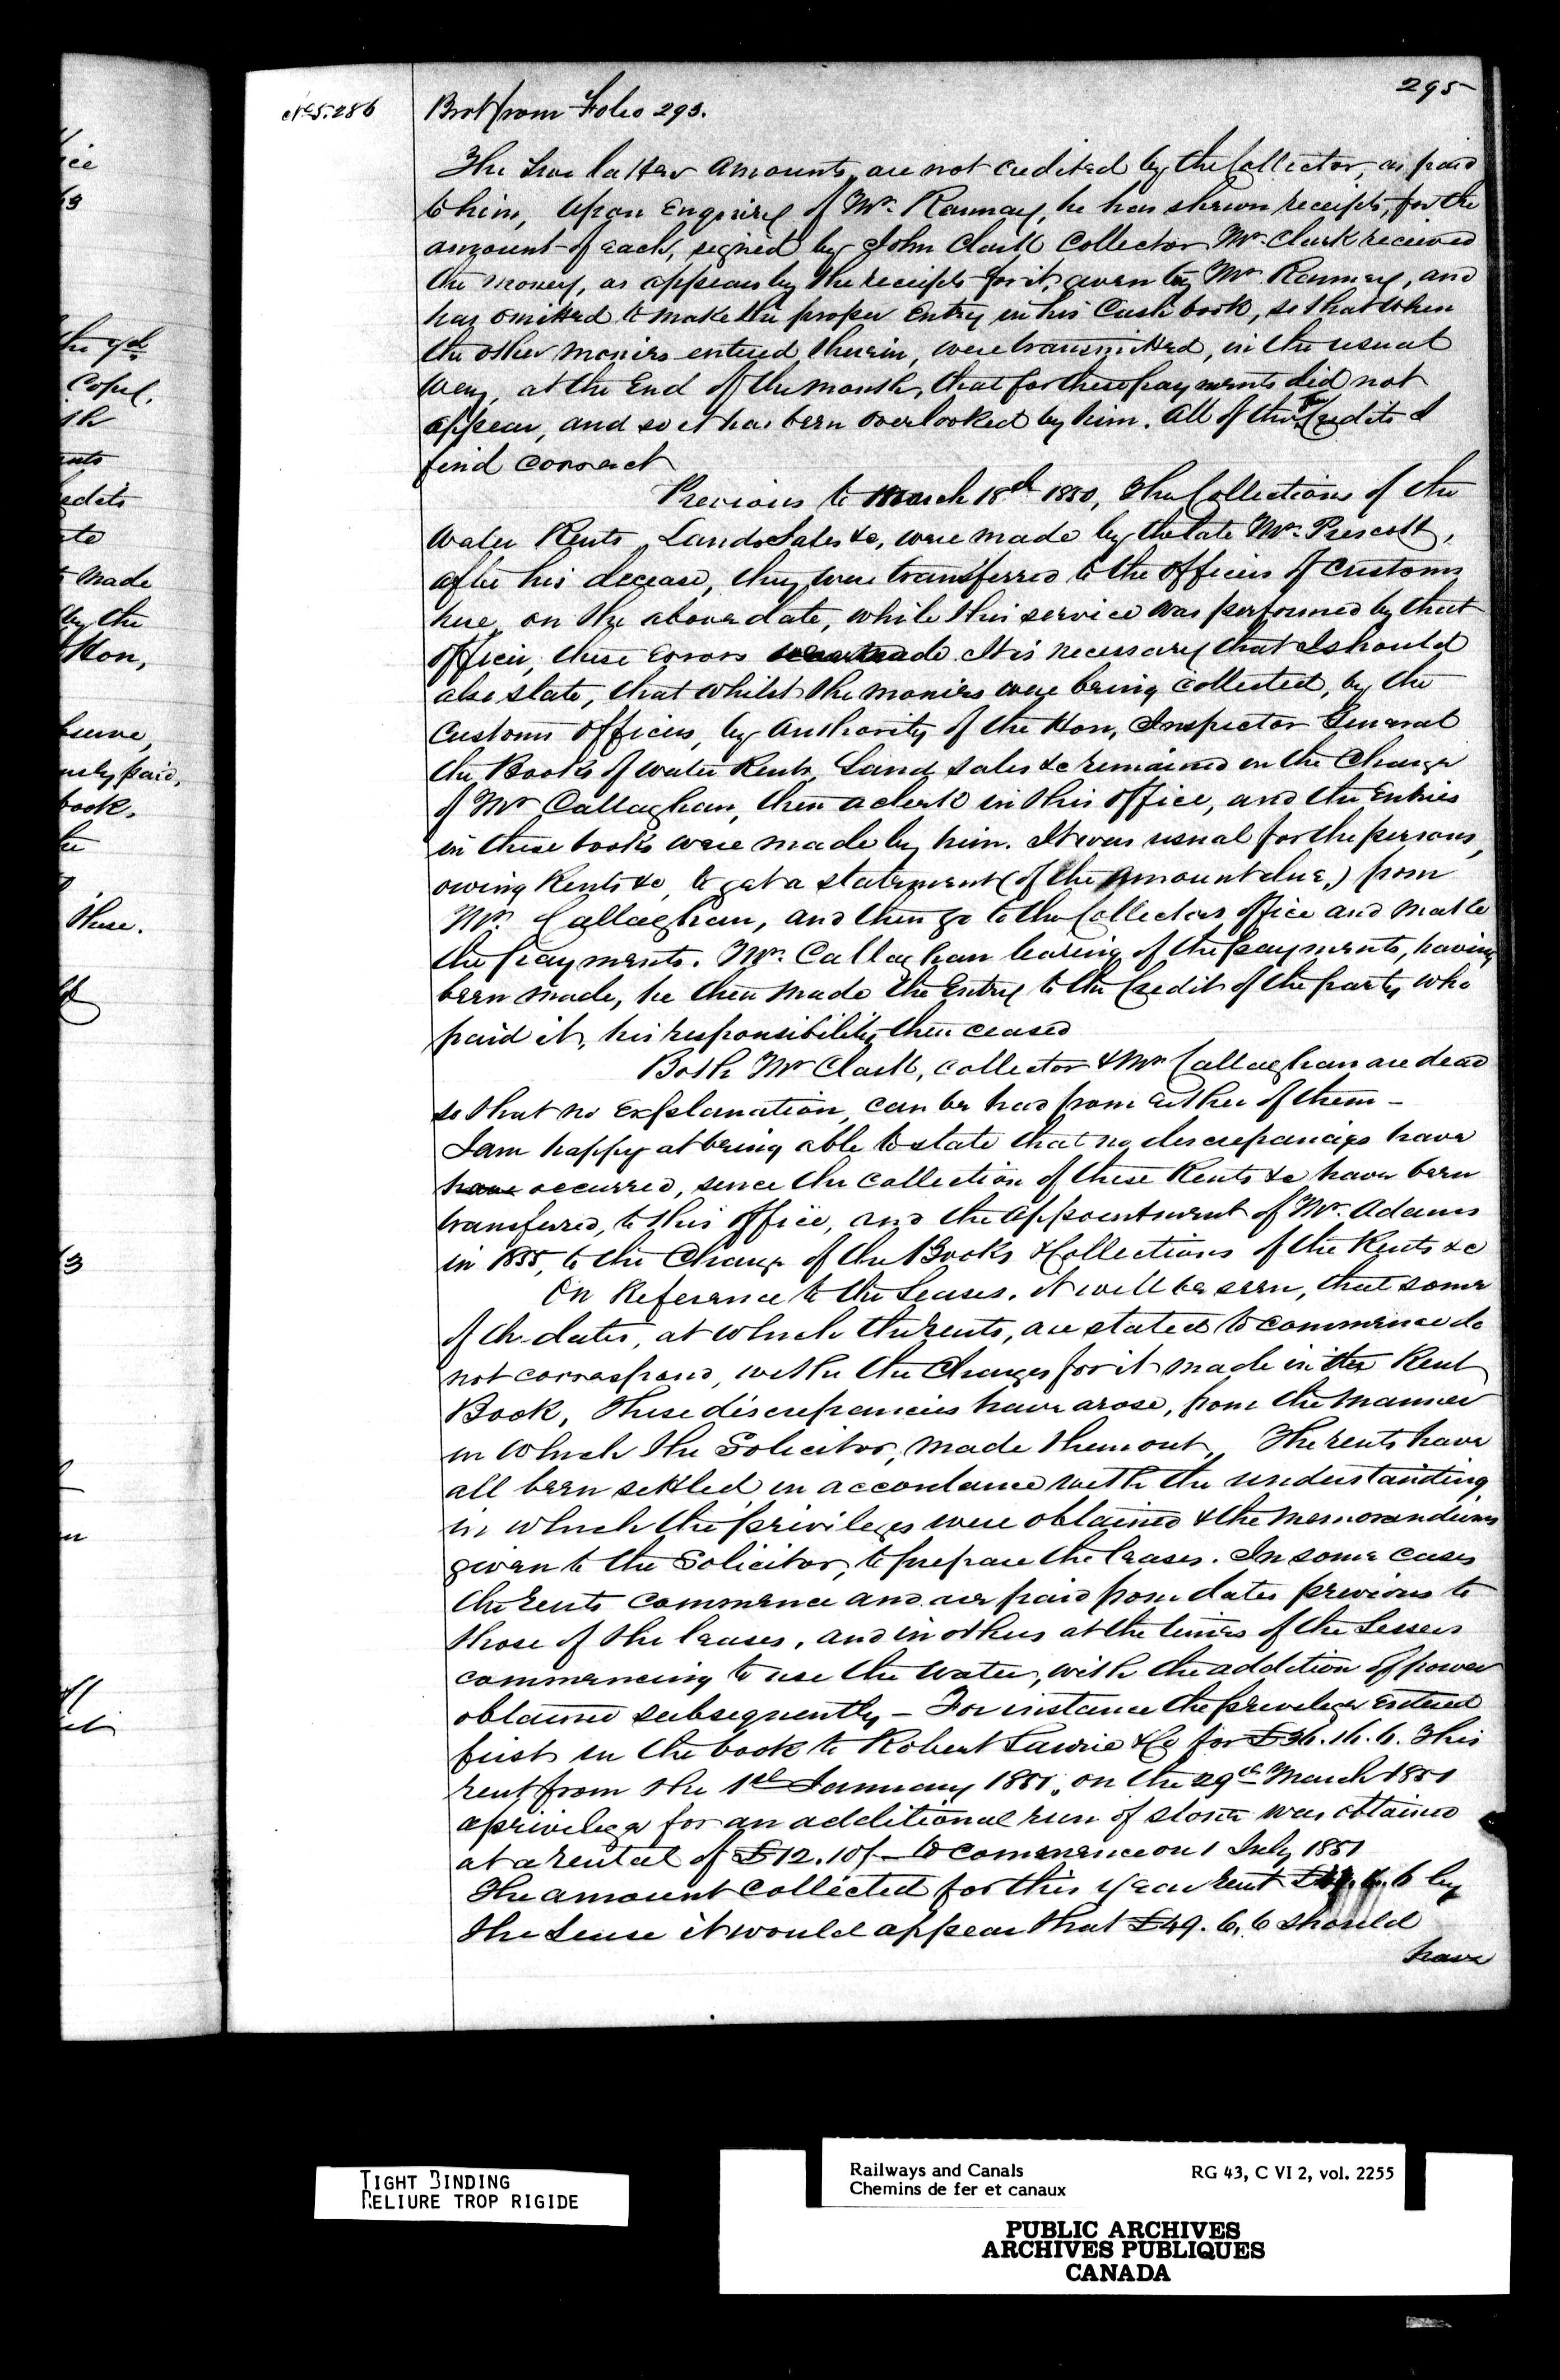 295
No 5.286
Brot from Folio 293.
The two latter amounts, are not credited by the Collector, as paid
to him, Upon Enquiry of Mr. Ranney, he has shewn receipts, for the
amount of each, signed by John Clark Collector Mr. Clark received
the money, as appears by the receipts for it, given by Mr Ranney, and
has omitted to make the proper Entry in his Cash book, so that when
the other monies entered therein, were transmitted, in the usual
way, at the End of the month, that for these payments did not
appear, and so it has been overlooked by him. All of the Credits I
find correct
Previous to March 18th 1850, The Collections of the
Water Rents, Lands Sales &c, were made by the late Mr. Prescott,
after his decease, they were transferred to the officers of Customs
here, on the above date, while this service was performed by that
officer, these Errors were made. It is necessary that I should
also state, that whilst the monies were being collected, by the
Customs officers, by Authority of the Hon, Inspector General
the Books of Water Rents, Land Sales &c remained in the Charge
of Mr Callaghan, then a clerk in this office, and the Entries
in these books were made by him. It was usual for the persons,
owing Rents &c, to get a statement (of the Amount due,) from
Mr. Callaghan, and then go to the Collectors office and make
the payments. Mr. Callaghan hearing of the payments, having
been made, he then made the Entry to the Credit of the party who
paid it, his responsibility then ceased
Both Mr Clark, Collector & Mr Callaghan are dead
so that no Explanation, can be had from either of them –
I am happy at being able to state that no discrepancies have
have occurred, since the Collection of these Rents &c have been
transferred, to this office, and the appointment of Mr. Adams
in 1855, to the Charge of the Books & Collections of the Rents &c
On Reference to the Leases, it will be seen, that some
of the dates, at which the rents, are stated to commence do
not correspond, with the Charges for it made in the Rent
Book, These discrepancies have arose, from the manner
in which the Solicitor, made them out, The rents have
all been settled in accordance with the understanding
in which the privileges were obtained & the memorandums
given to the Solicitor, to prepare the leases. In some cases
the rents commence and are paid from dates previous to
those of the leases, and in others at the times of the Lessees
commencing to use the water, with the addition of power
obtained subsequently – For instance the privilege Entered
first in the book to Robert Lawrie & Co for £36.16.6. This
rent from the 1st January 1851, on the 29th March 1851
a privilege for an additional run of stone was obtained
at a rental of £12.10/– to commence on 1 July 1851
The amount collected for this year rent 6 by
the Lease it would appear that £49.6.6 should
have
TIGHT BINDING
RELIURE TROP RIGIDE
Railways and Canals
Chemins de fer et canaux
RG 43, C VI 2, vol. 2255
PUBLIC ARCHIVES
ARCHIVES PUBLIQUES
CANADA